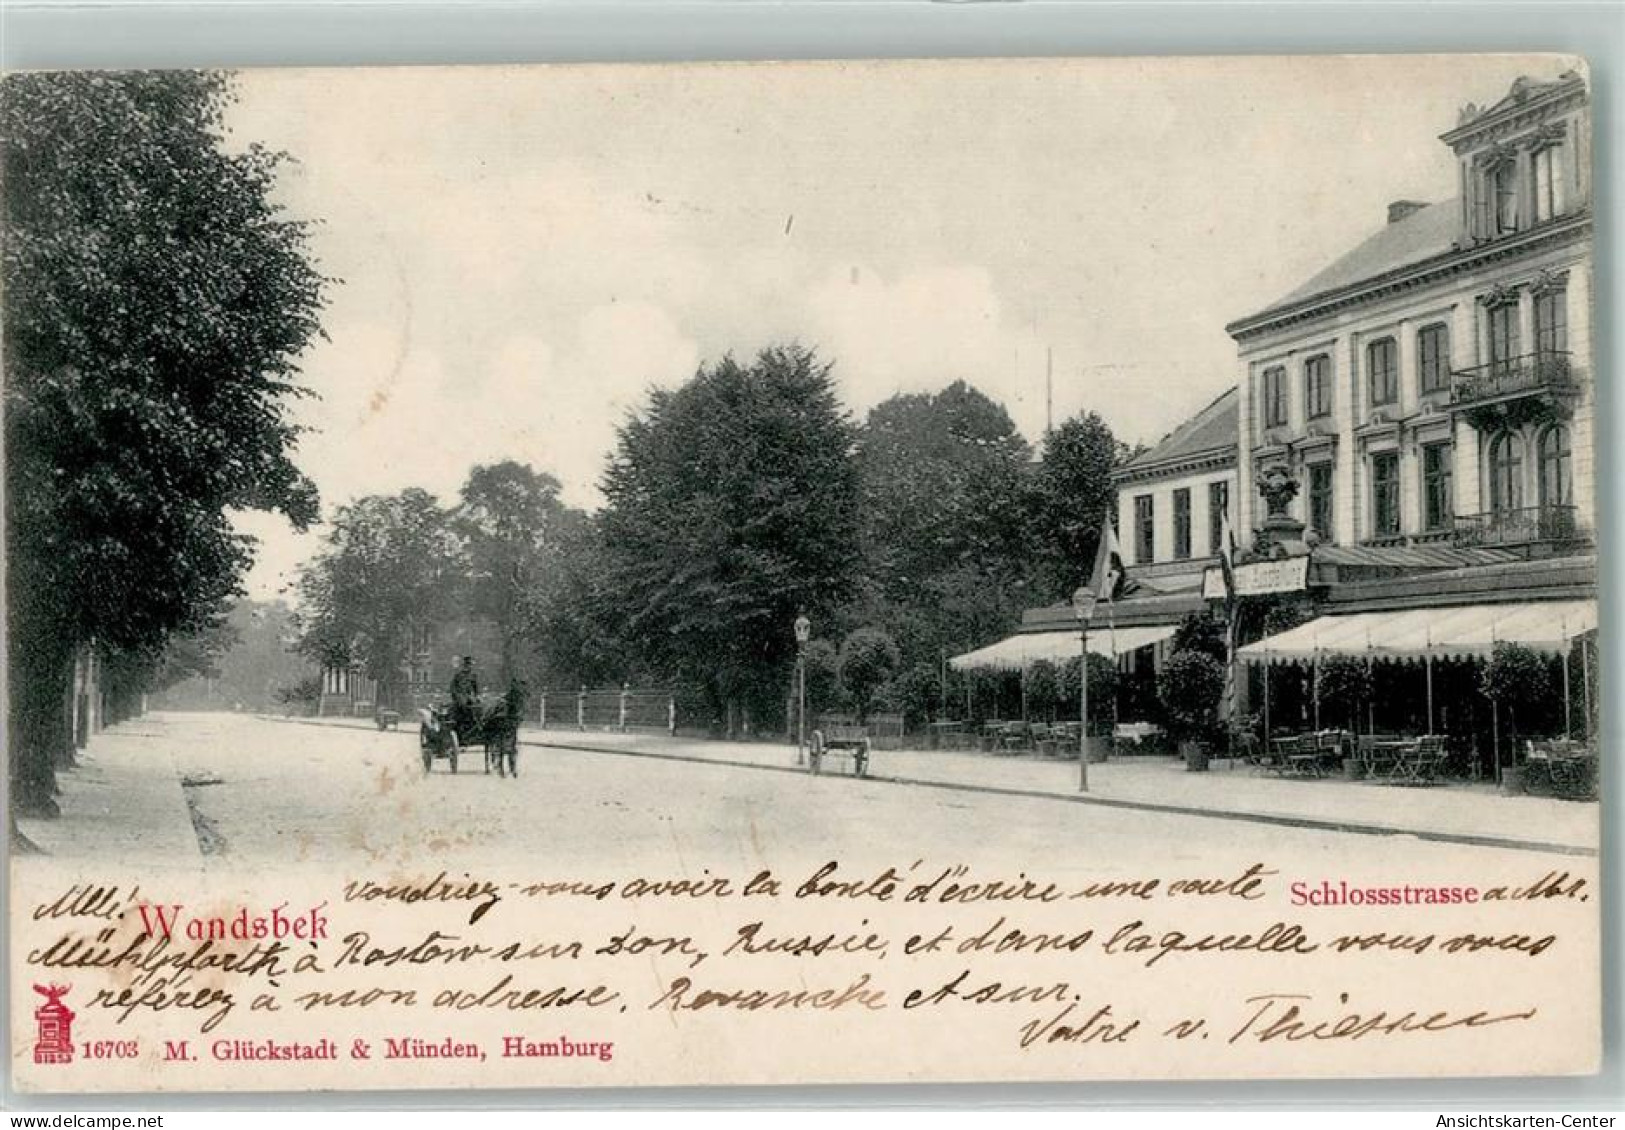 Mlle! voudriez-vous avoir la bonté d'écrire une carte a Mr.
Schlossstrasse
Wandsbek
Mühlpforth à Rostow sur Don, Russie, et dans laquelle vous vous
référez à mon adresse. Revanche et sur.
Votre v. Thiessen
16703 M. Glückstadt & Münden, Hamburg
Ansichtskarten-Center